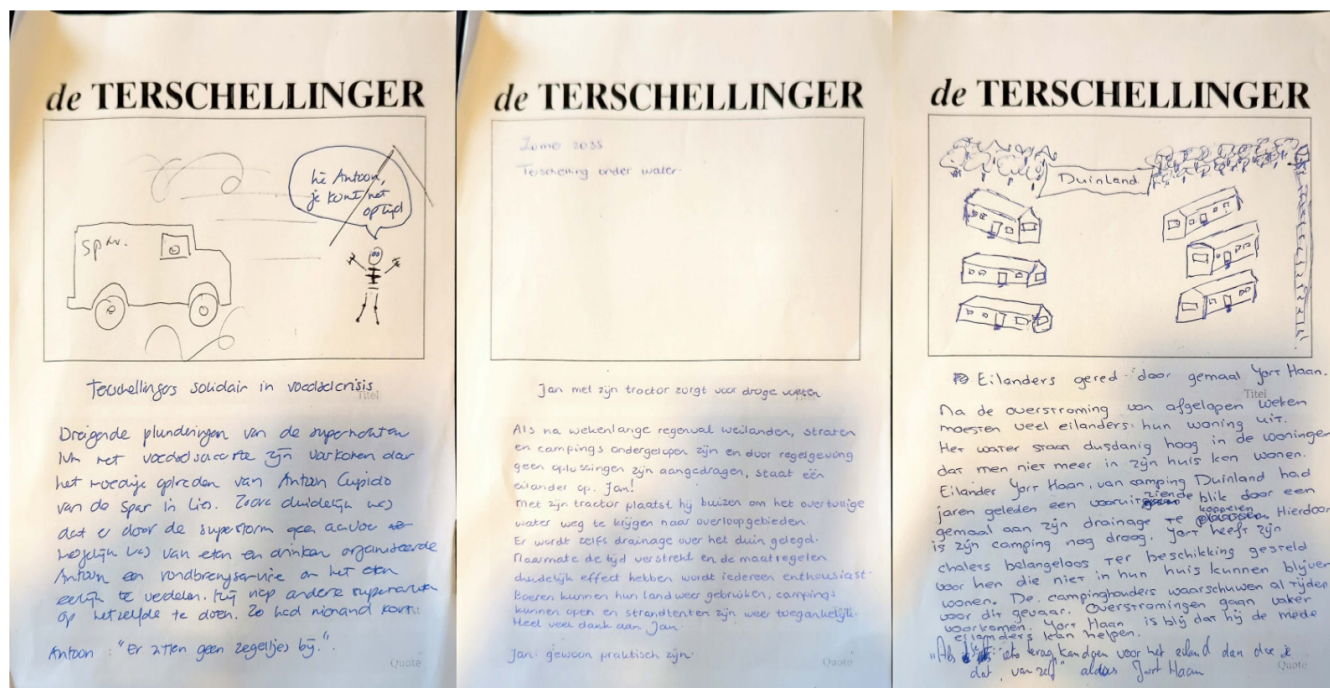 de TERSCHELLINGER
hè Antoon,
je komt net
op tijd
Terschellingers solidair in voedselcrisis
Titel
Dreigende plunderingen van de supermarkten
het voedselschaarste zijn voorkomen door
het moedige optreden van Antoon Cupido
van de Spar in Lies. Zodra duidelijk was
dat er door de superstorm geen aanvoer
mogelijk was van eten en drinken organiseerde
Antoon een rondbrengservice om het eten
eerlijk te verdelen. Hij riep andere supermarkten
op hetzelfde te doen. Zo had niemand
Antoon: "Er zitten geen zegeltjes bij."
Quote
de TERSCHELLINGER
Zomer 2035
Terschelling onder water
Jan met zijn tractor zorgt voor droge
Titel
Als na wekenlange regenval weilanden, straten
en campings ondergelopen zijn en door regelgeving
geen oplossingen zijn aangedragen, staat één
eilander op. Jan!
Met zijn tractor plaatst hij buizen om het overtollige
water weg te krijgen naar overloopgebieden
Er wordt zelfs drainage over het duin gelegd.
Naarmate de tijd verstrekt en de maatregelen
duidelijk effect hebben wordt iedereen enthousiast.
Boeren kunnen hun land weer gebruiken, campings
kunnen open en strandtenten zijn weer toegankelijk.
Heel veel dank aan Jan.
Jan: gewoon praktisch zijn.
Quote
de TERSCHELLINGER
Duinland
Eilanders gered door gemaal Jort Haan.
Titel
Na de overstroming van afgelopen weken
moesten veel eilanders hun woning uit.
Het water staan dusdanig hoog in de woningen
dat men niet meer in zijn huis kan wonen.
Eilander Jort Haan, van camping Duinland had
jaren geleden een vooruitziende blik door een
gemaal aan zijn drainage te koppelen Hierdoor
is zijn camping nog droog. Jort heeft zijn
chalets belangeloos ter beschikking gesteld
voor hen die niet in hun huis kunnen blijven
wonen. De campinghouders waarschuwen al tijden
voor dit gevaar. Overstromingen gaan vaker
voorkomen. Jort Haan is blij dat hij de mede
eilanders kan helpen.
"Als iets kan doen voor het eiland dan doe je
dat van zelf" aldus Jort Haan
Quote